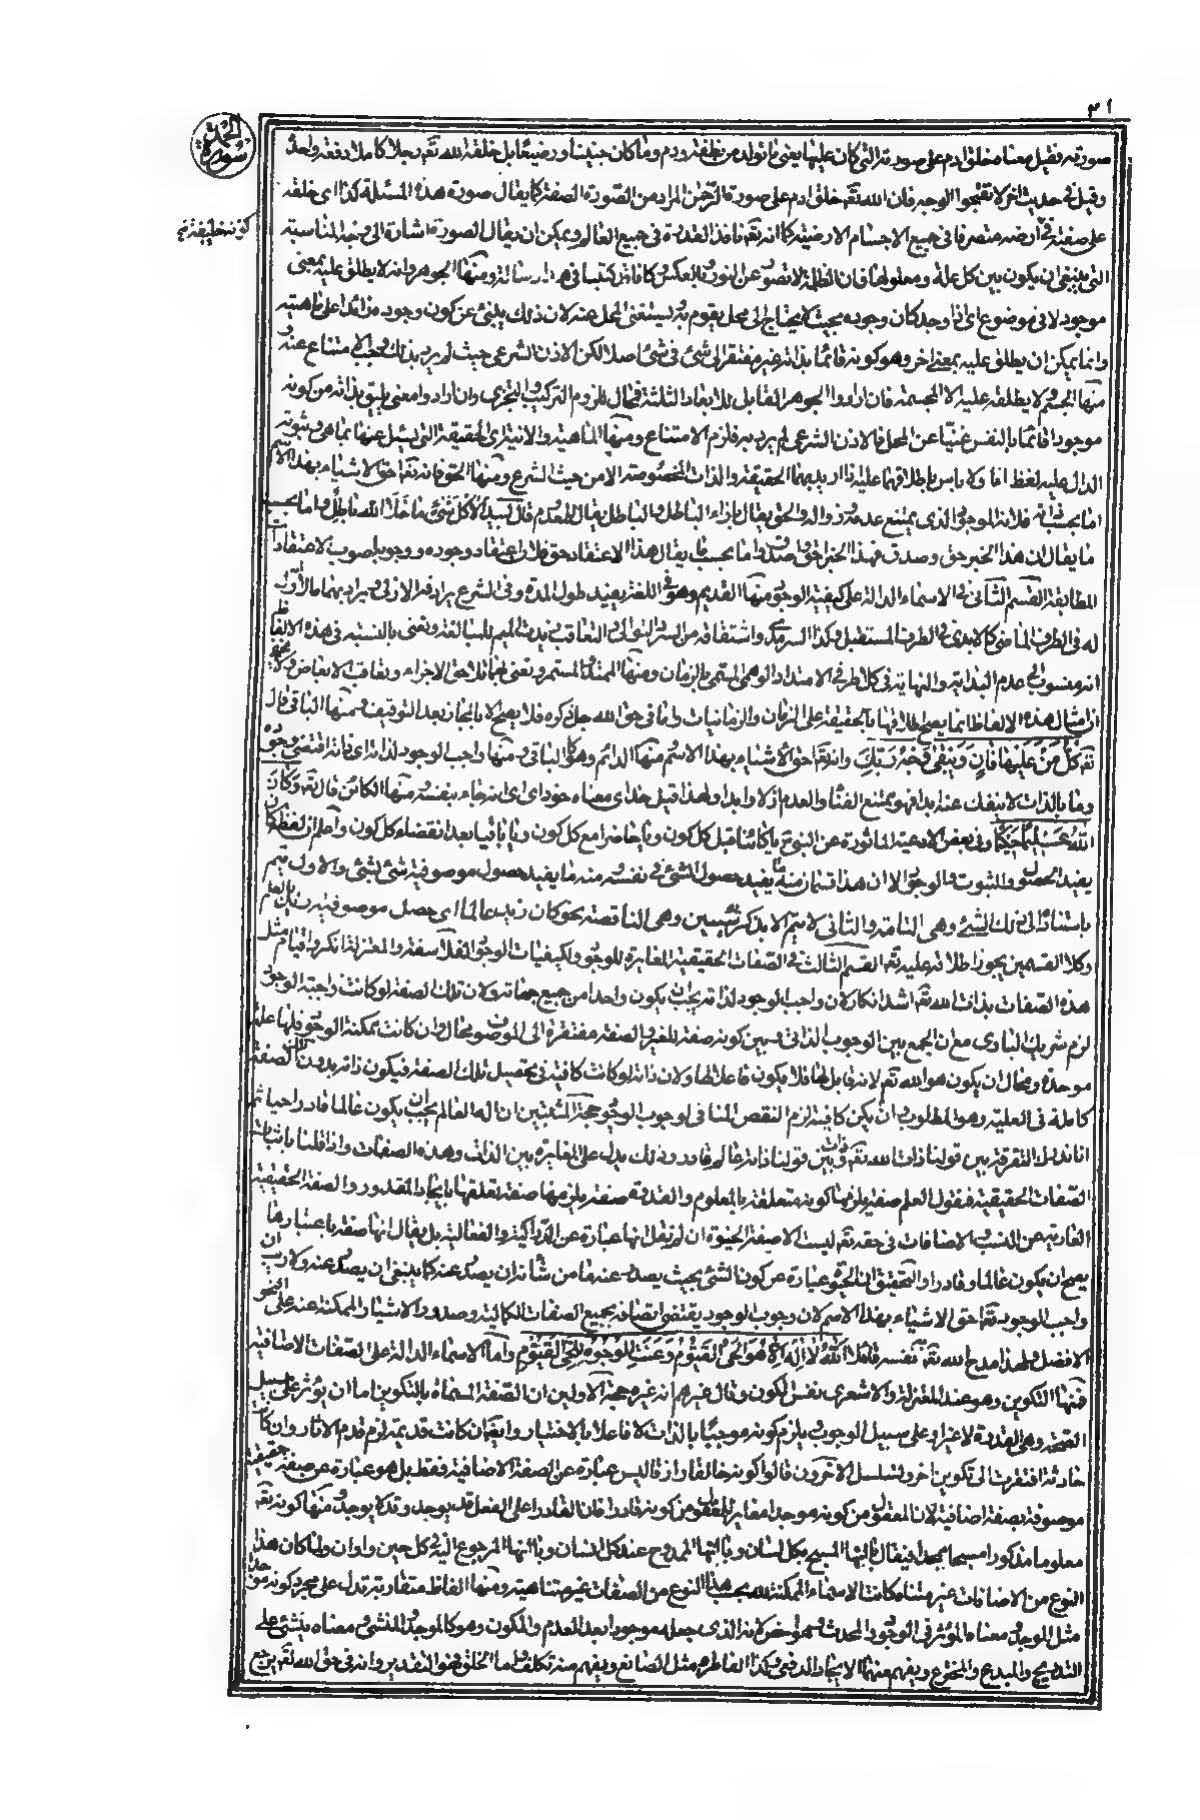 ٣١
سورة الحمد
كونه خليفة
صورته فقيل معناه خلق ادم على صورته التي كان عليها يعني ما تولد من نطفة ودم وما كان جنينا ورضيعا بل خلقه الله تعه رجلا كاملا دفعة واحدة
وقيل في حديث اخر لا تقبحوا الوجه فان الله تعه خلق ادم على صورة الرحمن المراد من الصورة الصفة كما يقال صورة هذه المسئلة كذا اى خلقه
على صفته في ارضه متصرفا في جميع الاجسام الارضية كما انه تعه نافذ القدرة في جميع العالم ويمكن ان يقال الصورة اشارة الى المناسبة
التي ينبغي ان يكون بين كل علة ومعلولها فان الظلمة لا تصدر عن النور وبالعكس ومنها الجوهر وانه لا يطلق عليه بمعنى
موجود لا في موضوع اى اذا وجد كان وجوده بحيث لا يحتاج الى محل يقوم به يستغني المحل عنه لان ذلك ينبئ عن كون وجوده زائدا على ماهيته
وانما يمكن ان يطلق عليه بمعنى اخر وهو كونه قائما بذاته غير مفتقر الى شئ في شئ اصلا لكن الاذن الشرعي حيث لم يرد بذلك وجب الامتناع عنه
منها الجسم ولا يطلقه عليه الا المجسمة فان ارادوا الجوهر القابل للابعاد الثلثة فمحال للزوم التركيب والتجزي وان ارادوا معنى يليق بذاته من كونه
موجودا قائما بالنفس غنيا عن المحل فالاذن الشرعي لم يرد به فلزم الامتناع ومنها الماهية والانية اى الحقيقة التي يسئل عنها بما هي وثبوته
الدال عليه لفظ ولا باس باطلاقهما عليه اذا اريد بهما الحقيقة والذات المخصوصة الا من حيث الشرع ومنها الحق فانه تعه احق الاشياء بهذا الاسم
اما بحسب ذاته فلانه الموجود الذى يمتنع عدمه وزواله والحق يقال بازاء الباطل والباطل يقال للمعدوم قال لبيد الا كل شئ ما خلا الله باطل واما بحسب
ما يقال ان هذا الخبر حق وصدق فهذا الخبر احق وصدق واما بحسب ما يقال هذا الاعتقاد حق فلان اعتقاد وجوده ووجوبه اصوب الاعتقادات
المطابقة القسم الثاني في الاسماء الدالة على كيفية الوجود منها القديم وهو في اللغة يفيد طول المدة وفي الشرع يرادفه الازلي ويراد بهما ما لا اول
له في الطرف الماضي كالابدى في الطرف المستقبل وكذا السرمدى واشتقاقه من السرد التوالى والتعاقب زيدت الميم للمبالغة ونعنى بالنسبة في هذه الالفاظ
انه منسوب الى عدم البداية والنهاية في كل طرفي الامتداد الوهمي المسمى بالزمان ومنها الممتد والمستمر ونعنى بهما تلاحق الاجزاء وتعاقب الابعاض ولا يخفى
ان امثال هذه الالفاظ انما يصح اطلاقها بالحقيقة على الزمان والزمانيات واما في حق الله جل ذكره فلا يصح الا بالمجاز بعد التوقيف ومنها الباقي قال
تعه كل من عليها فان ويبقى وجه ربك وانه تعه احق الاشياء بهذا الاسم منها الدائم وهو كالباقي ومنها واجب الوجود لذاته اى ذاته اقتضى وجوده
وما بالذات لا ينفك عنه ابدا فهو ممتنع الفناء والعدم ازلا وابدا ولهذا قيل خداى معناه خود اى اى انه جاء بنفسه منها الكائن قال تعه وكان
الله وفي بعض الادعية الماثورة عن النبي ص يا كائنا قبل كل كون ويا حاضرا مع كل كون ويا باقيا بعد انقضاء كل كون واعلم ان لفظ كان
يفيد الحصول والثبوت والوجود الا ان هذا قسمان منه ما يفيد حصول الشئ في نفسه منه ما يفيد حصول موصوفية شئ لشئ والاول يتم
باسناده الى ذلك الشئ وهي التامة والثاني لا يتم الا بذكر شيئين وهي الناقصة نحو كان زيد عالما اى حصل موصوفية زيد بالعلم
وكلا القسمين يجوز اطلاقه عليه تعه القسم الثالث في الصفات الحقيقية المغايرة للوجود ولكيفيات الوجود الفلاسفة والمعتزلة انكروا قيام مثل
هذه الصفات بذات الله تعه اشد انكار لان واجب الوجود لذاته يجب ان يكون واحدا من جميع جهاته ولان تلك الصفة لو كانت واجبة الوجود
لزم شريك البارى مع ان الجمع بين الوجوب الذاتي وبين كونه صفة للغير والصفة مفتقرة الى الموصوف محال وان كانت ممكنة الوجود فلها علة
موجدة ومحال ان يكون هو الله تعه لانه قابل لها فلا يكون فاعلا لها ولان ذاته لو كانت كافية في تحصيل تلك الصفة فيكون ذاته بدون تلك الصفة
كاملة في العلية وهو المطلوب وان لم يكن كافية لزم النقص المنافي لوجوب الوجود حجة المثبتين ان اله العالم يجب ان يكون عالما قادرا حيا ثم
انا ندرك التفرقة بين قولنا ذات الله تعه وبين قولنا ذاته عالم قادر وذلك يدل على المغايرة بين الذات وهذه الصفات واذا قلنا باثبات
الصفات الحقيقية فنقول العلم صفة يلزمها كونه متعلقة بالمعلوم والقدرة صفة يلزمها صفة تعلقها بايجاد المقدور والصفة الحقيقية
العارية عن النسب والاضافات في حقه تعه ليست الا صفة الحيوة ان لم نقل انها عبارة عن الدراكية والفعالية بل يقال انها صفة باعتبارها
يصح ان يكون عالما وقادرا والتحقيق ان الحيوة عبارة عن كون الشئ بحيث يصدر عنه ما من شانه ان يصدر عنه كما ينبغي ان يصدر عنه ولا ريب ان
واجب الوجود تعه احق الاشياء بهذا الاسم لان وجوب الوجود يقتضى اتصافه بجميع الصفات الكمالية وصدور الاشياء الممكنة عنه على النحو
الافضل ولهذا مدح الله تعه نفسه قائلا الله لا اله الا هو الحي القيوم وعنت الوجوه للحي القيوم واما الاسماء الدالة على الصفات الاضافية
فمنها التكوين وهو عند المعتزلة والاشعرى نفس المكون وقال غيرهم انه غيره حجة الاولين ان الصفة المسماة بالتكوين اما ان يؤثر على سبيل
الصحة وهي القدرة لا غير او على سبيل الوجوب فيلزم كونه موجبا بالذات لا فاعلا بالاختيار وايضا ان كانت قديمة لزم قدم الاثار وان كانت
حادثة افتقرت الى تكوين اخر وتسلسل الاخرون قالوا كونه خالقا رازقا ليس عبارة عن الصفة الاضافية فقط بل هو عبارة عن صفة حقيقية
موصوفة بصفة اضافية لان المعقول من كونه موجدا مغاير للمعقول من كونه قادرا فان القادر على الفعل قد يوجد وقد لا يوجد ومنها كونه تعه
معلوما مذكورا مسبحا ممجدا فيقال يا ايها المسبح بكل لسان ويا ايها الممدوح عند كل انسان ويا ايها المرجوع اليه في كل حين واوان ولما كان هذا
النوع من الاضافات غير متناه كانت الاسماء الممكنة لله بحسب هذا النوع من الصفات غير متناهية ومنها الفاظ متقاربة تدل على مجرد كونه موجدا
مثل الموجد ومعناه المؤثر في الوجود المحدث وهو اخص لانه الذى جعله موجودا بعد العدم والمكون وهو كالموجد والمنشئ ومعناه ينشئ على
التدريج والمبدع والمخترع ويفهم عنهما الايجاد الدفعي وكذا الفاطر مثل الصانع ويفهم منه تكلف واما الخلق فهو التقدير وانه في حق الله تعه يرجع